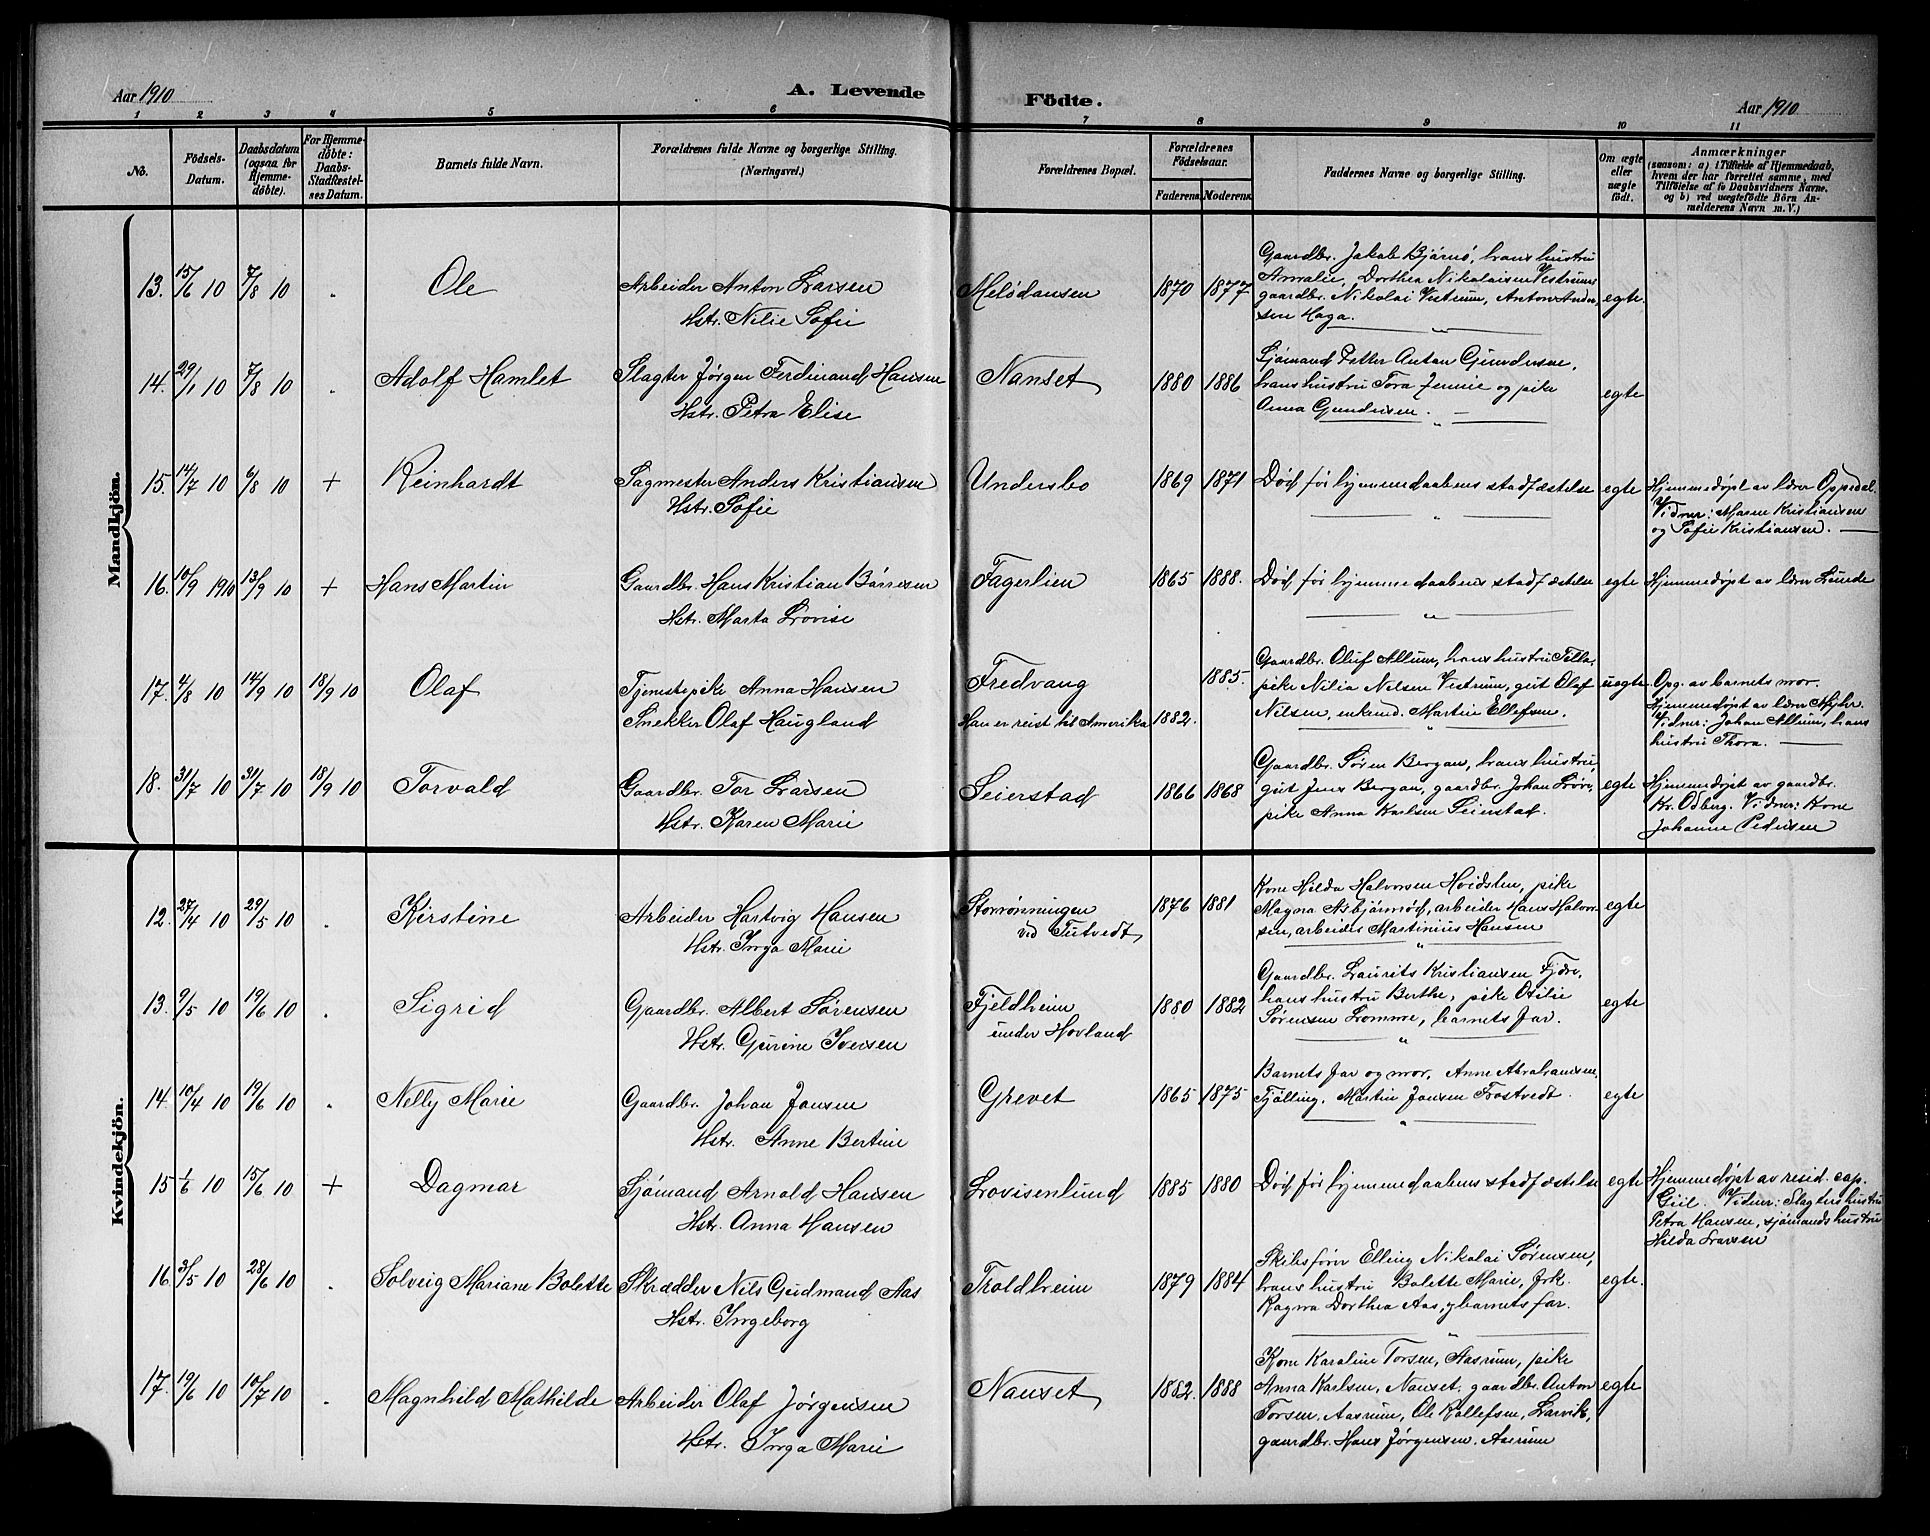 Aar 1910
A. Levende
Födte.
Aar 1910
1 2 3 4 5 6 7 8 9 10 11
No.
Födsels-
Datum.
Daabsdatum
(ogsaa for
Hjemme-
döbte).
For Hjemme-
döbte:
Daabs-
Stadfæstel-
ses Datum.
Barnets fulde Navn.
Forældrenes fulde Navne og borgerlige Stilling.
(Næringsvei.)
Forældrenes Bopæl.
Forældrenes
Födselsaar.
Faderens. Moderens.
Faddernes Navne og borgerlige Stilling.
Om ægte
eller
uægte
födt.
Anmærkninger
(saasom: a) i Tilfælde af Hjemmedaab,
hvem der har forrettet samme, med
Tilföielse af to Daabsvidners Navne,
og b) ved uægtefödte Börn An-
melderens Navn m. V.)
Mandkjön.
13. 15/6 10 7/8 10 „ Ole
Arbeider Anton Larsen
Hstr. Nilie Sofie
Melødansen 1870 1877
Gaardbr. Jakob Bjørnø, hans hustru
Amalie, Dorthea Nikolaisen Vestrum,
gaardbr. Nikolai Vestrum, Anton Ander-
sen Haga.
egte.
14. 29/1 10 7/8 10 „ Adolf Hamlet
Slagter Jørgen Ferdinand Hansen
Hstr. Petra Elise
Nanset 1880 1886
Sjømand Petter Anton Gundersen,
hans hustru Tora Jennie og pike
Anna Gundersen.
egte
15. 14/7 10 6/8 10 + Reinhardt
Sagmester Anders Kristiansen
Hstr. Sofie
Undersbo 1869 1871
Død før hjemmedaabens stadfæstelse
egte
Hjemmedøpt av lærer Oppedal.
Vidner: Maren Kristiansen
og Sofie Kristiansen.
16. 10/9 1910 13/9 10 + Hans Martin
Gaardbr. Hans Kristian Børresen
Hstr. Marta Lovise
Fagerlien 1865 1888.
Død før hjemmedaabens stadfæstelse
egte
Hjemmedøpt av lærer Lunde
17. 4/8 10 14/9 10 18/9 10 Olaf
Tjenestepike Anna Hansen
Snekker Olaf Haugland
Fredvang 1885.
Han er reist til Amerika 1882.
Gaardbr. Oluf Allum, hans hustru Tilla,
pike Nilia Nilsen Vestrum, gut Olaf
Nilsen, enkemd. Martin Ellefsen.
uegte.
Opg. av barnets mor.
Hjemmedøpt av lærer Myhr.
Vidner: Johan Allum, hans
hustru Thora.
18. 31/7 10 31/7 10 18/9 10 Torvald
Gaardbr. Tor Larsen
Hstr. Karen Marie
Seierstad 1866 1868
Gaardbr. Søren Bergan, hans hustru,
gut Jens Bergan, gaardbr. Johan Løve,
pike Anna Karlsen Seierstad.
egte
Hjemmedøpt av gaardbr.
Kr. Odberg. Vidner: Kone
Johanne Pedersen
Kvindekjön.
12. 27/4 10 29/5 10 „ Kirstine
Arbeider Hartvig Hansen
Hstr. Inga Marie
Storrønningen
ved Tutvedt,
1876 1881
Kone Hilda Halvorsen Hvidsten, pike
Magna Asbjørnrød, arbeider Hans Halvor-
sen, arbeider Martinius Hansen
egte
13. 9/5 10 19/6 10 „ Sigrid
Gaardbr. Albert Sørensen
Hstr. Gurine Iversen
Fjeldheim
under Hovland
1880 1882
Gaardbr. Laurits Kristiansen Fjære,
hans hustru Berthe, pike Otilie
Sørensen Lomme, barnets far.
egte
14. 10/4 10 19/6 10 „ Nelly Marie
Gaardbr. Johan Jansen
Hstr. Anne Bertine
Grevet 1865 1875
Barnets far og mor, Anne Abrahamsen,
Tjølling, Martin Jansen Frostvedt.
egte
15 1/6 10 15/6 10 + Dagmar
Sjømand Arnold Hansen
Hstr. Anna Hansen
Lovisenlund 1885 1880
Død før hjemmedaabens stadfæstelse
egte
Hjemmedøpt av resid. cap.
Giil. Vidner: Slagters hustru
Petra Hansen, sjømands hustru
Hilda Larsen
16. 3/5 10 28/6 10 „ Solveig Mariane Bolette
Skrædder Nils Gudmand Aas
Hstr. Ingeborg
Troldheim 1879 1884
Skibsfører Elling Nikolai Sørensen,
hans hustru Bolette Marie, frk.
Ragna Dorthea Aas, barnets far.
egte.
17. 19/6 10 10/7 10 „ Magnhild Mathilde
Arbeider Olaf Jørgensen
Hstr. Inga Marie
Nanset 1882. 1888
Kone Karoline Torsen, Aasrum, pike
Anna Karlsen, Nanset, gaardbr. Anton
Torsen, Aasrum, Ole Rollefsen, Larvik,
gaardbr. Hans Jørgensen, Aasrum
egte